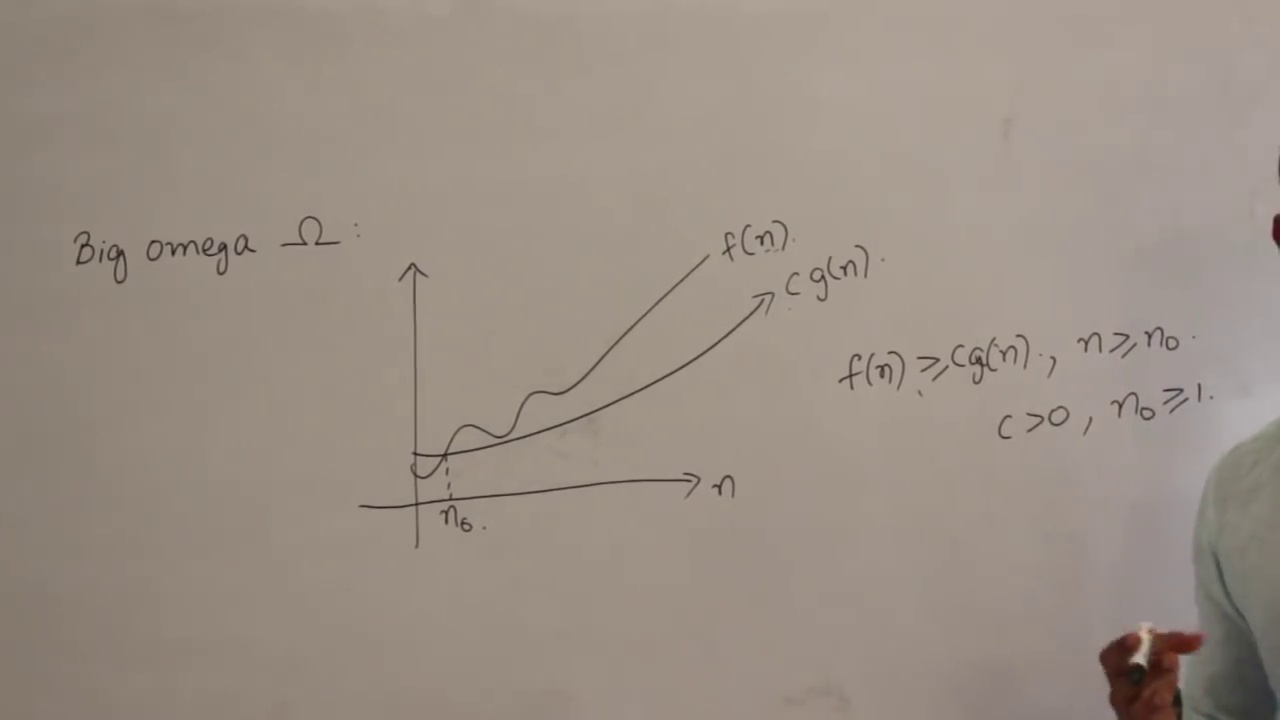 Big omega Ω :
f(n).
c g(n).
f(n) ⩾ cg(n)., n ⩾ n₀.
c > 0, n₀ ⩾ 1.
n
n₀.